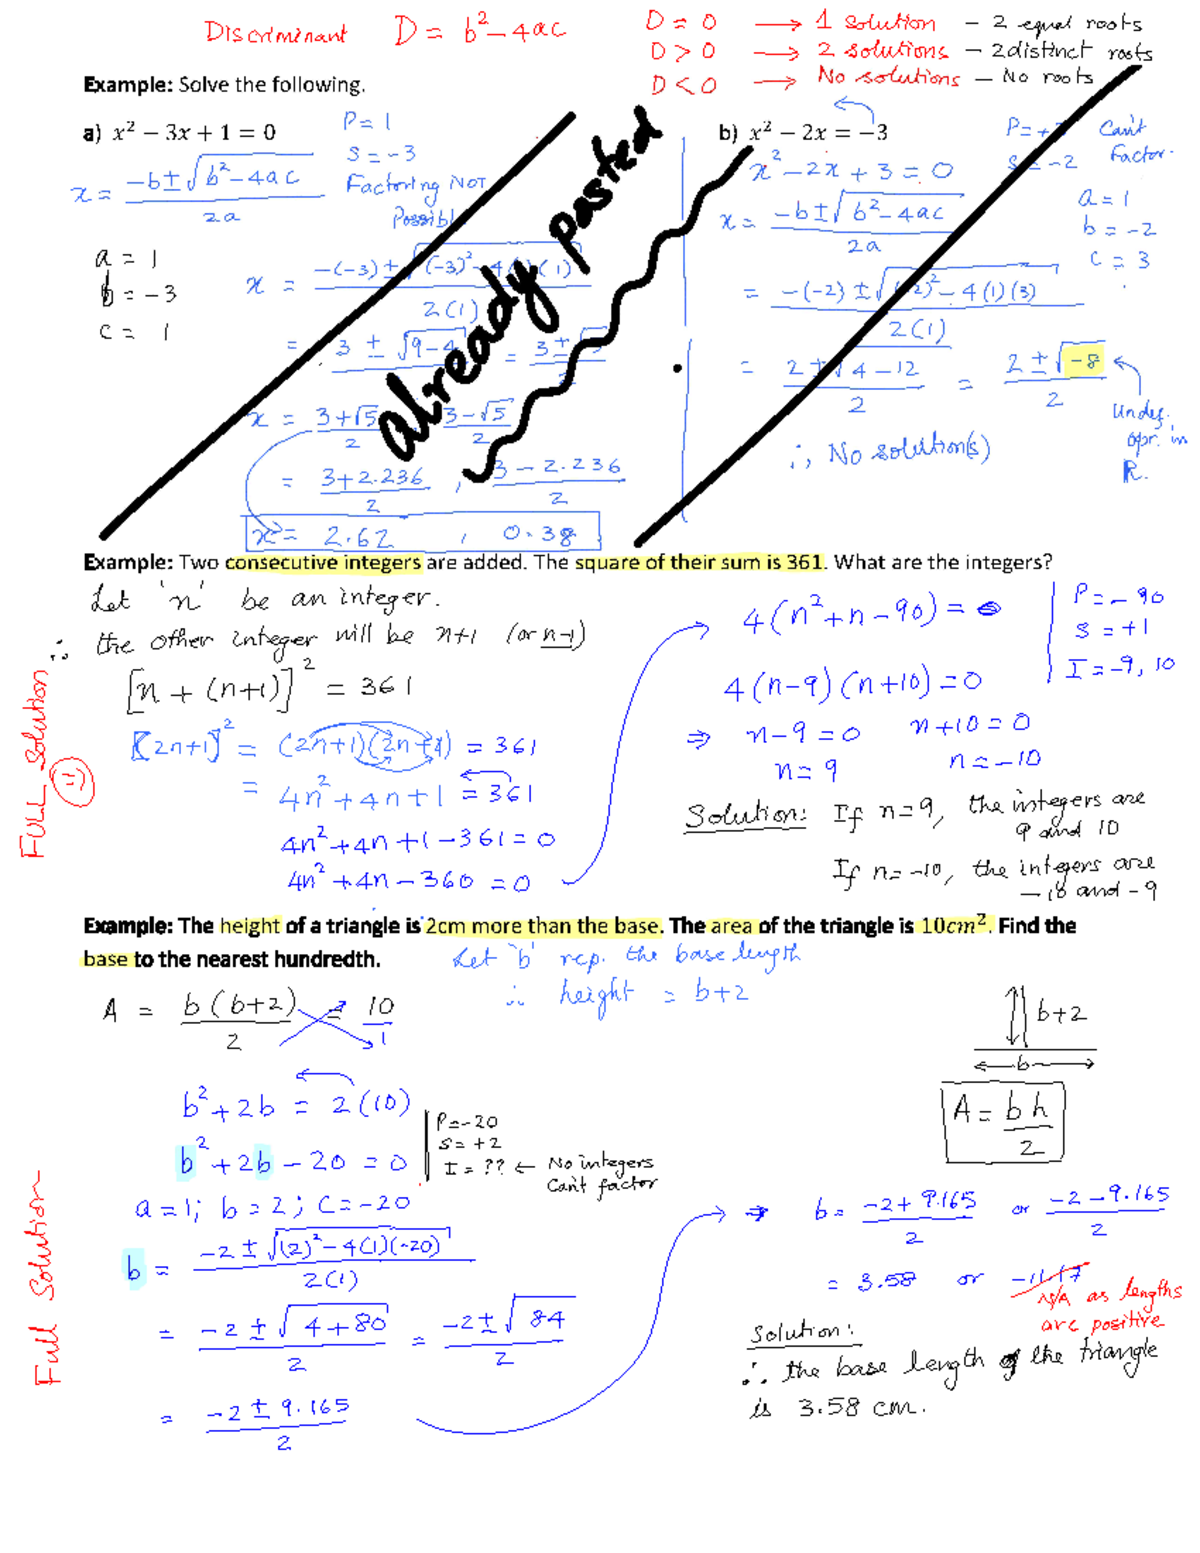 Discriminant D = b² – 4ac
D = 0 → 1 solution – 2 equal roots
D > 0 → 2 solutions – 2 distinct roots
D < 0 → No solutions – No roots
Example: Solve the following.
a) x² − 3x + 1 = 0
P = 1
S = -3
Factoring NOT
x = (-b ± √(b² - 4ac)) / 2a
a = 1
b = -3
c = 1
x = (-(-3) ± √((-3)² - 4( )(1))) / 2(1)
x = (3+√5)/2 , (3-√5)/2
= (3+2.236)/2 , (3-2.236)/2
x = 2.62 , 0.38
already pasted
b) x² − 2x = −3
Can't
Factor.
x² - 2x + 3 = 0
x = (-b ± √(b² - 4ac)) / 2a
a = 1
b = -2
c = 3
= (-(-2) ± √((-2)² - 4(1)(3))) / 2(1)
= (2 ± √(4 - 12)) / 2 = (2 ± √-8) / 2
Undef.
opr. in
R.
∴ No solution(s)
Example: Two consecutive integers are added. The square of their sum is 361. What are the integers?
Let 'n' be an integer.
∴ the other integer will be n+1 (or n-1)
[n + (n+1)]² = 361
[2n+1]² = (2n+1)(2n+1) = 361
= 4n² + 4n + 1 = 361
4n² + 4n + 1 - 361 = 0
4n² + 4n - 360 = 0
FULL Solution
4(n² + n - 90) = 0
P = -90
S = +1
I = -9, 10
4(n-9)(n+10) = 0
⇒ n-9 = 0 n+10 = 0
n = 9 n = -10
Solution: If n=9, the integers are
9 and 10
If n=-10, the integers are
-10 and -9
Example: The height of a triangle is 2cm more than the base. The area of the triangle is 10cm². Find the
base to the nearest hundredth.
Let 'b' rep. the base length
∴ height = b+2
A = b(b+2)/2 = 10/1
b+2
b
A = bh/2
b² + 2b = 2(10)
b² + 2b - 20 = 0
P = -20
S = +2
I = ?? ← No integers
Can't factor
a = 1; b = 2; c = -20
b = (-2 ± √((2)² - 4(1)(-20))) / 2(1)
= (-2 ± √(4+80)) / 2 = (-2 ± √84) / 2
= (-2 ± 9.165) / 2
Full Solution
⇒ b = (-2 + 9.165)/2 or (-2 - 9.165)/2
= 3.58 or -11.17
N/A as lengths
are positive
Solution:
∴ the base length of the triangle
is 3.58 cm.